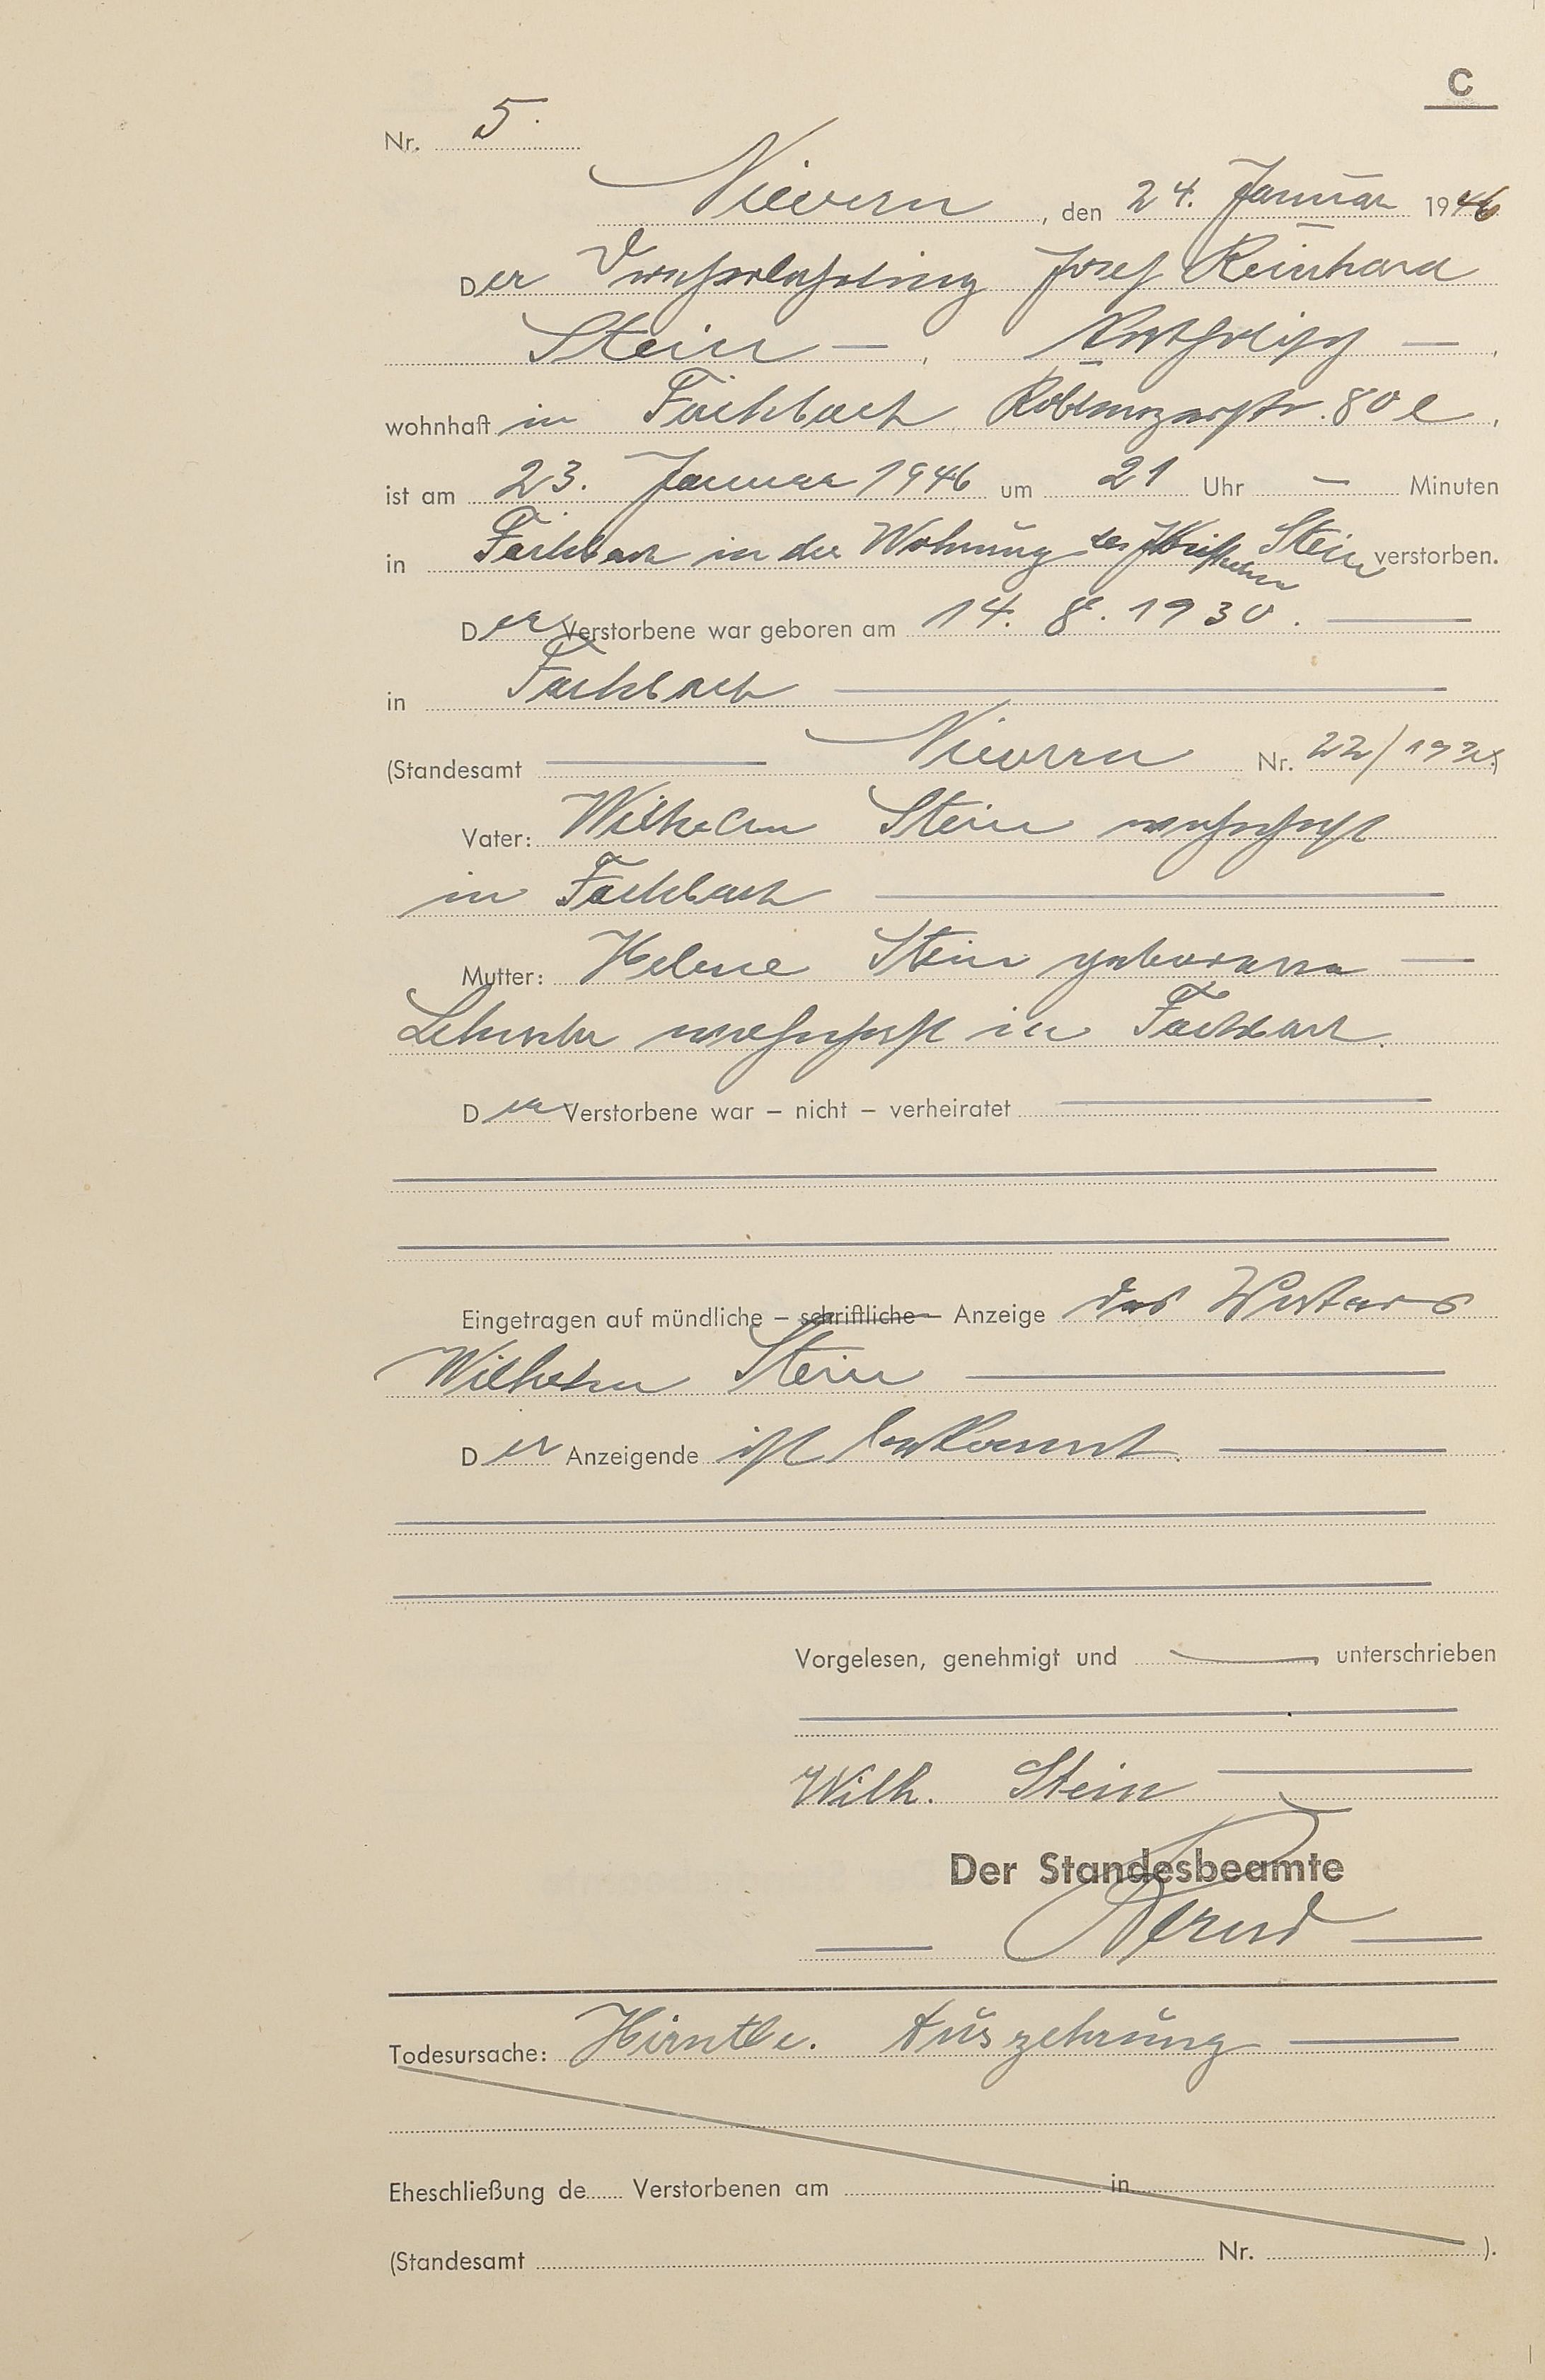 C
Nr. 5.
Nievern, den 24. Januar 1946
Der Dreherlehrling Josef Reinhard
Stein —, katholisch —,
wohnhaft in Fachbach, Koblenzerstr. 80 e,
ist am 23. Januar 1946 um 21 Uhr — Minuten
in Fachbach in der Wohnung des Stein verstorben.
Der Verstorbene war geboren am 14. 8. 1930.
in Fachbach
(Standesamt Nievern Nr. 22/193
Vater: Wilhelm Stein wohnhaft
in Fachbach
Mutter: Helene Stein geborene —
wohnhaft in Fachbach.
Der Verstorbene war – nicht – verheiratet
Eingetragen auf mündliche – schriftliche – Anzeige des Vaters
Wilhelm Stein
Der Anzeigende ist bekannt.
Vorgelesen, genehmigt und — unterschrieben
Wilh. Stein
Der Standesbeamte
Todesursache: Auszehrung
Eheschließung de Verstorbenen am in
(Standesamt Nr. ).